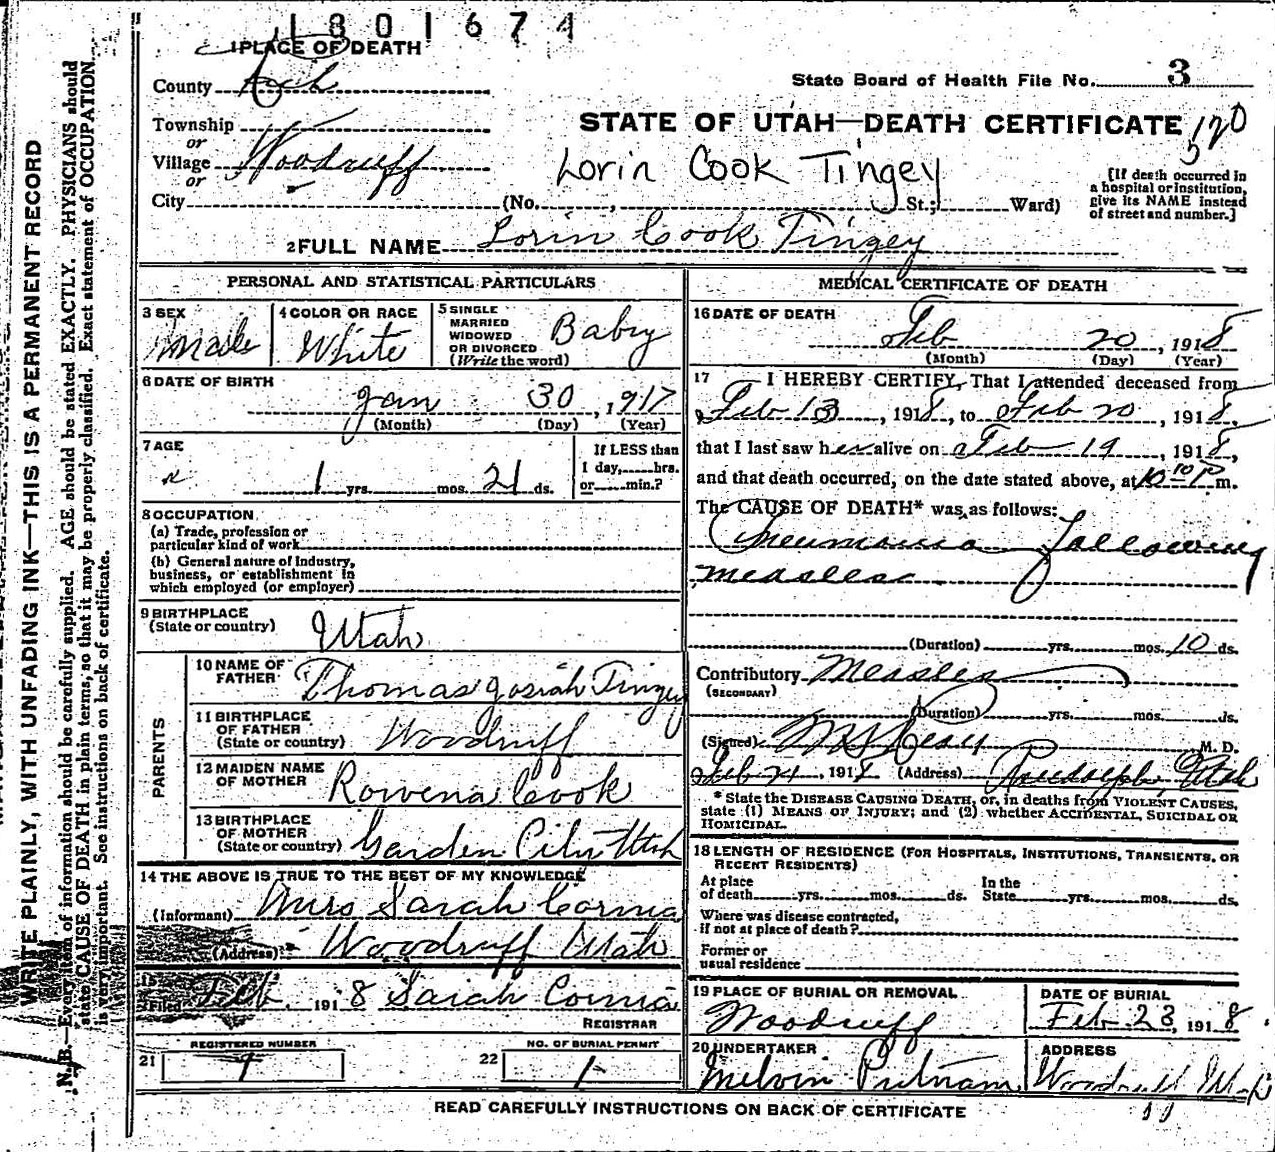 1301674
1 PLACE OF DEATH
County
State Board of Health File No. 3
Township
or
Village Woodruff
or
City (No. , St.; Ward)
STATE OF UTAH—DEATH CERTIFICATE 120
5
Lorin Cook Tingey
[If death occurred in
a hospital or institution,
give its NAME instead
of street and number.]
2 FULL NAME Lorin Cook Tingey
WRITE PLAINLY, WITH UNFADING INK—THIS IS A PERMANENT RECORD
N. B.—Every item of information should be carefully supplied. AGE should be stated EXACTLY. PHYSICIANS should
state CAUSE OF DEATH in plain terms, so that it may be properly classified. Exact statement of OCCUPATION
is very important. See instructions on back of certificate.
PERSONAL AND STATISTICAL PARTICULARS
3 SEX
Male
4 COLOR OR RACE
White
5 SINGLE
MARRIED
WIDOWED
OR DIVORCED
(Write the word)
Baby
6 DATE OF BIRTH
Jan 30, 1917
(Month) (Day) (Year)
7 AGE
1 yrs. mos. 21 ds.
If LESS than
1 day, hrs.
or min.?
8 OCCUPATION
(a) Trade, profession or
particular kind of work
(b) General nature of Industry,
business, or establishment in
which employed (or employer)
9 BIRTHPLACE
(State or country)
Utah
PARENTS
10 NAME OF
FATHER
Thomas Josiah Tingey
11 BIRTHPLACE
OF FATHER
(State or country)
Woodruff
12 MAIDEN NAME
OF MOTHER
Rowena Cook
13 BIRTHPLACE
OF MOTHER
(State or country)
Garden City Utah
14 THE ABOVE IS TRUE TO THE BEST OF MY KNOWLEDGE
(Informant) Mrs Sarah Cornia
(Address) Woodruff Utah
15
Filed Feb. 1918 Sarah Cornia
REGISTRAR
21
REGISTERED NUMBER
22
NO. OF BURIAL PERMIT
1
MEDICAL CERTIFICATE OF DEATH
16 DATE OF DEATH
Feb 20, 1918
(Month) (Day) (Year)
17 I HEREBY CERTIFY, That I attended deceased from
Feb 13, 1918, to Feb 20, 1918,
that I last saw h alive on Feb 19, 1918,
and that death occurred, on the date stated above, at 10 10 P m.
The CAUSE OF DEATH* was as follows:
Pneumonia following
measles
(Duration) yrs. mos. 10 ds.
Contributory Measles
(SECONDARY)
(Duration) yrs. mos. ds.
(Signed) M. D.
Feb 21, 1918 (Address) Randolph, Utah
* State the DISEASE CAUSING DEATH, or, in deaths from VIOLENT CAUSES,
state (1) MEANS OF INJURY; and (2) whether ACCIDENTAL, SUICIDAL OR
HOMICIDAL.
18 LENGTH OF RESIDENCE (FOR HOSPITALS, INSTITUTIONS, TRANSIENTS, OR
RECENT RESIDENTS)
At place
of death yrs. mos. ds.
In the
State yrs. mos. ds.
Where was disease contracted,
if not at place of death?
Former or
usual residence
19 PLACE OF BURIAL OR REMOVAL
Woodruff
DATE OF BURIAL
Feb 23, 1918.
20 UNDERTAKER
Melvin Putnam
ADDRESS
Woodruff Utah
READ CAREFULLY INSTRUCTIONS ON BACK OF CERTIFICATE